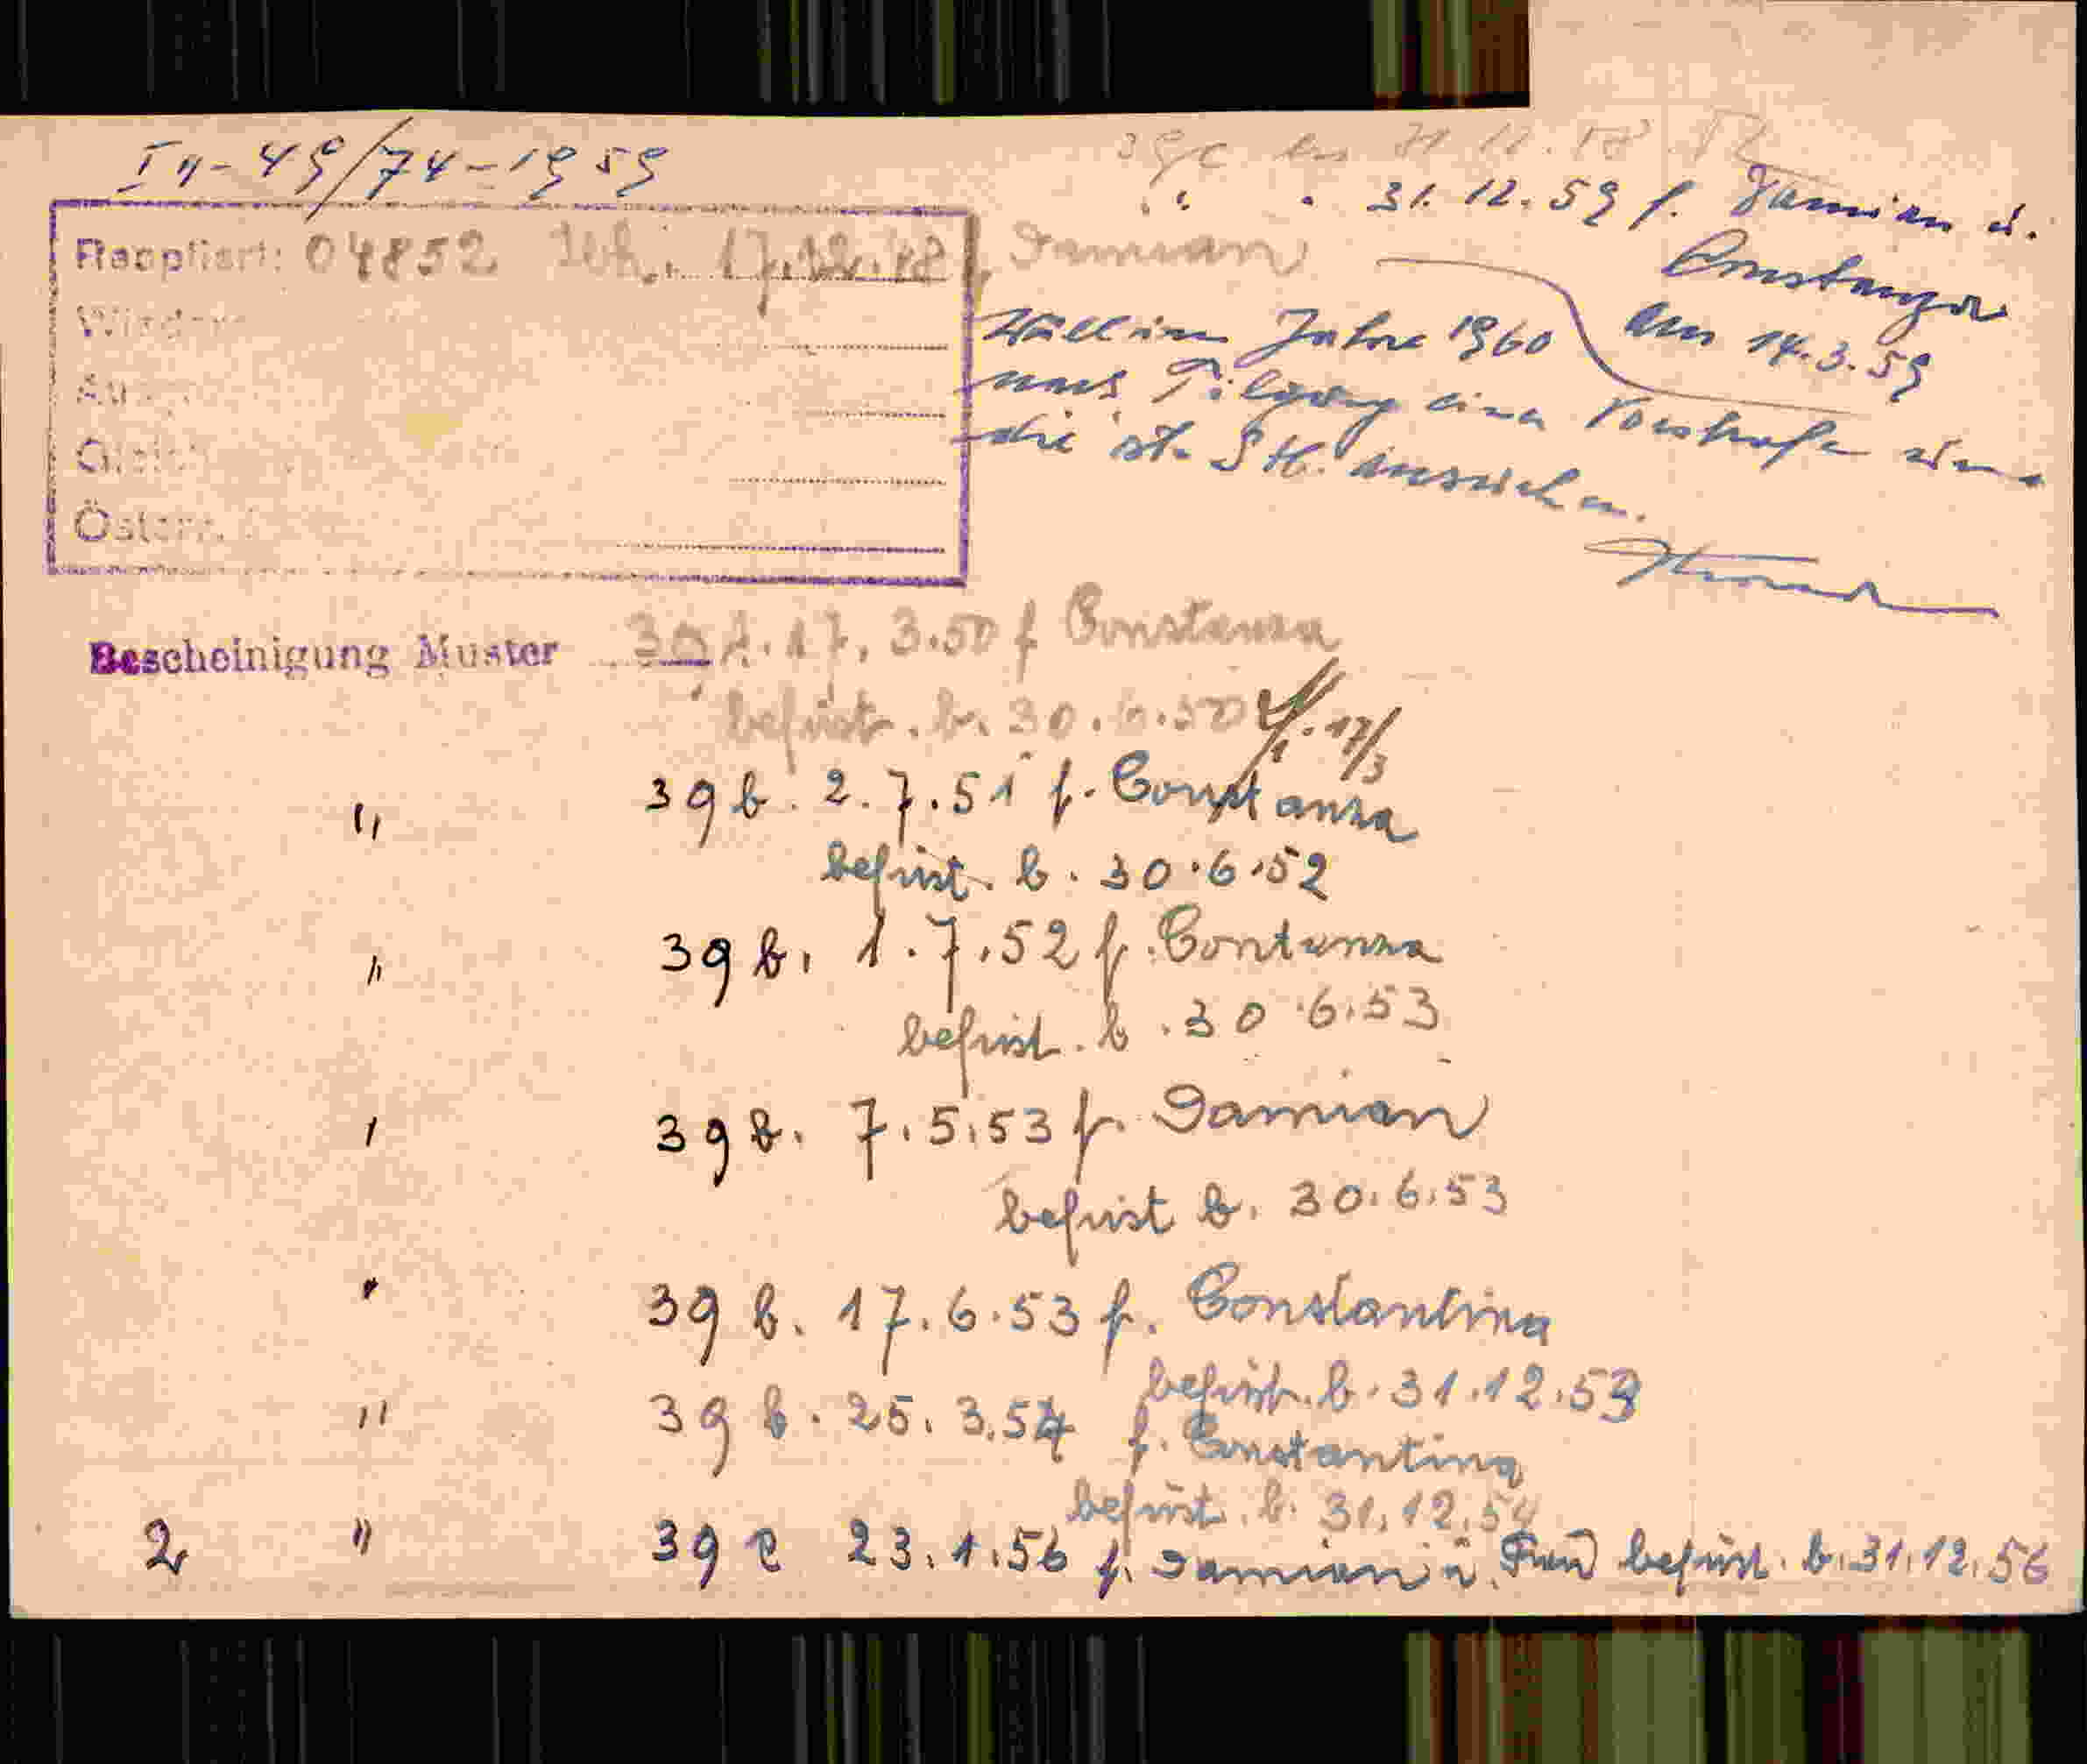 II-49/74-1959
39c bis 31.12.58
" . 31.12.59 f. Damian u.
Constanza
am 14.3.59
Reoptiert: 04852 17.12.48 f. Damian
Wieder
Gleich
Österr.
Will im Jahre 1960
nach Tilgung einer Vorstrafe um
die öst. Stb. ansuchen.
Bescheinigung Muster 39 17.3.50 f Constanza
befrist. b. 30.6.50 17/3
" 39 b. 2.7.51 f. Constanza
befrist. b. 30.6.52
" 39 b. 1.7.52 f. Contanza
befrist. b. 30.6.53
39 b. 7.5.53 f. Damian
befrist b. 30.6.53
" 39 b. 17.6.53 f. Constantina
befrist. b. 31.12.53
" 39 b. 25.3.54 f. Constantina
befrist. b. 31.12.54
2 " 39 c 23.1.56 f. Damian u. Frau befrist. b. 31.12.56